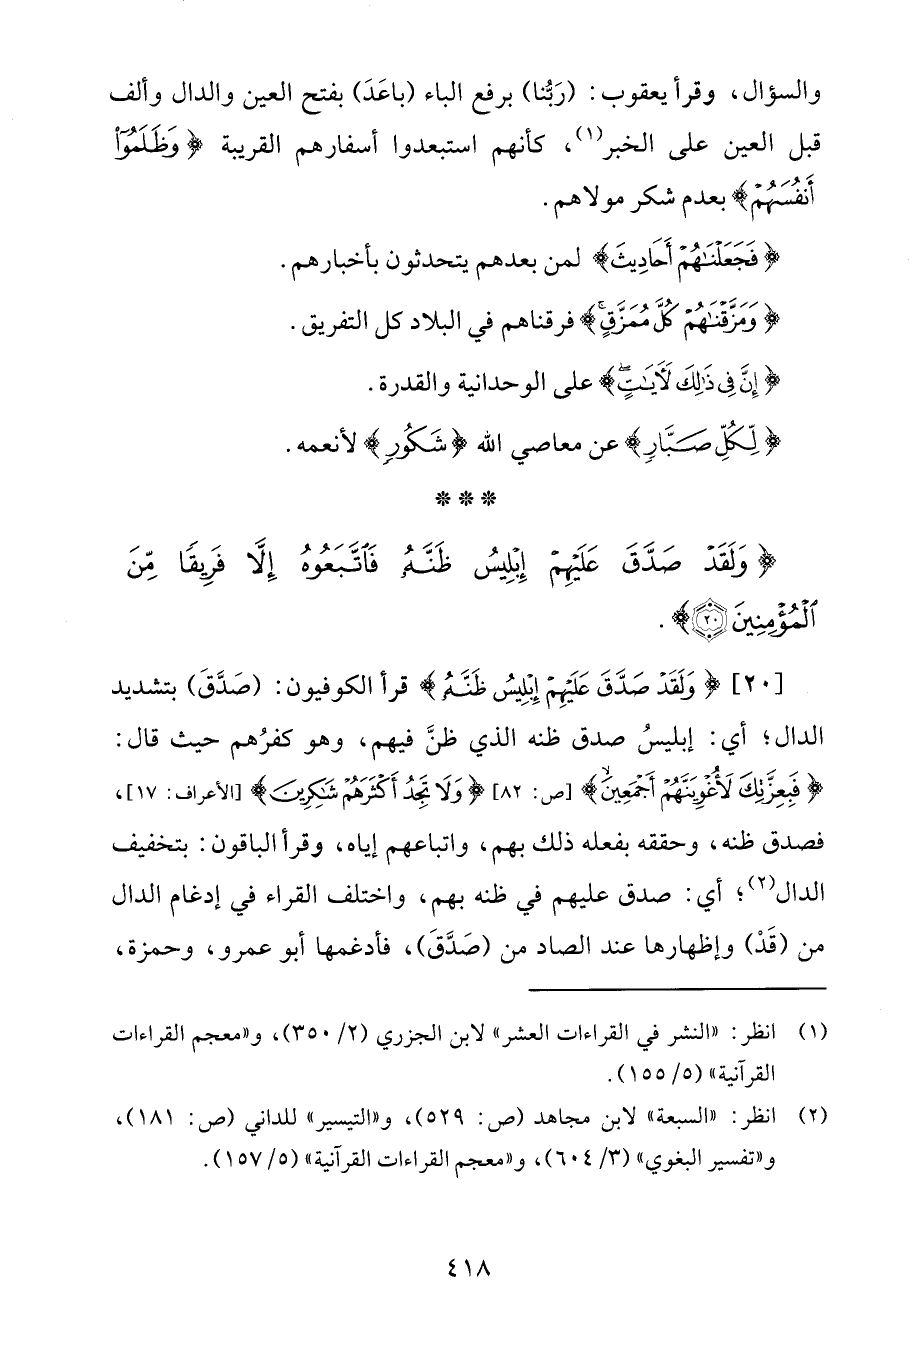 والسؤال، وقرأ يعقوب: (رَبُّنا) برفع الباء (باعَدَ) بفتح العين والدال وألف
قبل العين على الخبر(١)، كأنهم استبعدوا أسفارهم القريبة ﴿وَظَلَمُوٓا۟
أَنفُسَهُمْ﴾ بعدم شكر مولاهم.
﴿فَجَعَلْنَٰهُمْ أَحَادِيثَ﴾ لمن بعدهم يتحدثون بأخبارهم.
﴿وَمَزَّقْنَٰهُمْ كُلَّ مُمَزَّقٍ ۚ﴾ فرقناهم في البلاد كل التفريق.
﴿إِنَّ فِى ذَٰلِكَ لَءَايَٰتٍ ۖ﴾ على الوحدانية والقدرة.
﴿لِّكُلِّ صَبَّارٍ﴾ عن معاصي الله ﴿شَكُورٍ﴾ لأنعمه.
* * *
﴿وَلَقَدْ صَدَّقَ عَلَيْهِمْ إِبْلِيسُ ظَنَّهُۥ فَٱتَّبَعُوهُ إِلَّا فَرِيقًا مِّنَ
ٱلْمُؤْمِنِينَ ٢٠﴾.
[٢٠] ﴿وَلَقَدْ صَدَّقَ عَلَيْهِمْ إِبْلِيسُ ظَنَّهُۥ﴾ قرأ الكوفيون: (صَدَّقَ) بتشديد
الدال؛ أي: إبليسُ صدق ظنه الذي ظنَّ فيهم، وهو كفرُهم حيث قال:
﴿فَبِعِزَّتِكَ لَأُغْوِيَنَّهُمْ أَجْمَعِينَ﴾ [ص: ٨٢] ﴿وَلَا تَجِدُ أَكْثَرَهُمْ شَٰكِرِينَ﴾ [الأعراف: ١٧]،
فصدق ظنه، وحققه بفعله ذلك بهم، واتباعهم إياه، وقرأ الباقون: بتخفيف
الدال(٢)؛ أي: صدق عليهم في ظنه بهم، واختلف القراء في إدغام الدال
من (قَدْ) وإظهارها عند الصاد من (صَدَّقَ)، فأدغمها أبو عمرو، وحمزة،
(١) انظر: «النشر في القراءات العشر» لابن الجزري (٢/ ٣٥٠)، و«معجم القراءات
القرآنية» (٥/ ١٥٥).
(٢) انظر: «السبعة» لابن مجاهد (ص: ٥٢٩)، و«التيسير» للداني (ص: ١٨١)،
و«تفسير البغوي» (٣/ ٦٠٤)، و«معجم القراءات القرآنية» (٥/ ١٥٧).
٤١٨